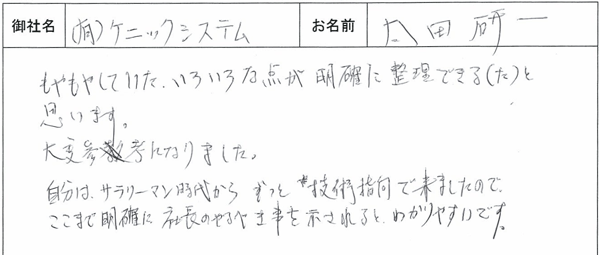 御社名 (有)ケニックシステム お名前 太田研一
もやもやしていた、いろいろな点が 明確に整理できる(た)と
思います。
大変参考になりました。
自分は、サラリーマン時代から ずっと 技術指向で来ましたので、
ここまで明確に 社長のやるべき事を示されると、わかりやすいです。